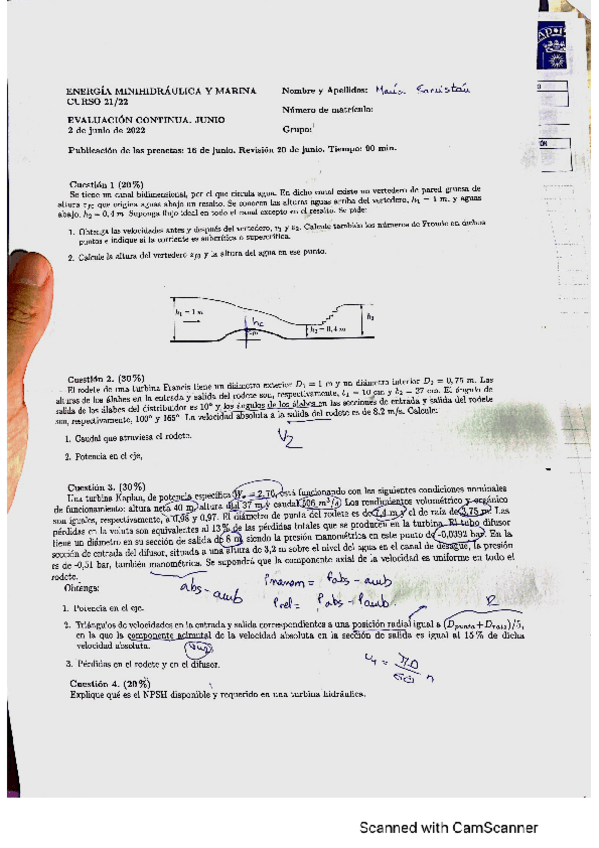 ENERGÍA MINIHIDRÁULICA Y MARINA
CURSO 21/22
EVALUACIÓN CONTINUA. JUNIO
2 de junio de 2022
Nombre y Apellidos: María
Número de matrícula:
Grupo:
Publicación de las prenotas: 16 de junio. Revisión 20 de junio. Tiempo: 90 min.
Cuestión 1 (20%)
Se tiene un canal bidimensional, por el que circula agua. En dicho canal existe un vertedero de pared gruesa de
altura que origina aguas abajo un resalto. Se conocen las alturas aguas arriba del vertedero, h₁ = 1 m, y aguas
abajo, h₂ = 0,4 m. Suponga flujo ideal en todo el canal excepto en el resalto. Se pide:
1. Obtenga las velocidades antes y después del vertedero, v₁ y v₂. Calcule también los números de Froude en dichos
puntos e indique si la corriente es subcrítica o supercrítica.
2. Calcule la altura del vertedero y la altura del agua en ese punto.
h₁ = 1 m
hc
h₂ = 0,4 m
h₃
Cuestión 2. (30%)
El rodete de una turbina Francis tiene un diámetro exterior D₁ = 1 m y un diámetro interior D₂ = 0,75 m. Las
alturas de los álabes en la entrada y salida del rodete son, respectivamente, = 10 cm y = 27 cm. El ángulo de
salida de los álabes del distribuidor es 10° y los ángulos de los álabes en las secciones de entrada y salida del rodete
son, respectivamente, 100° y 165°. La velocidad absoluta a la salida del rodete es de 8.2 m/s. Calcule:
1. Caudal que atraviesa el rodete.
V₂
2. Potencia en el eje,
Cuestión 3. (30%)
Una turbina Kaplan, de potencia específica = 2,70, está funcionando con las siguientes condiciones nominales
de funcionamiento: altura neta 40 m, altura útil 37 m y caudal m³/s. Los rendimientos volumétrico y orgánico
son iguales, respectivamente, a 0,98 y 0,97. El diámetro de punta del rodete es de 7,4 m y el de raíz de 3,75 m. Las
pérdidas en la voluta son equivalentes al 13% de las pérdidas totales que se producen en la turbina. El tubo difusor
tiene un diámetro en su sección de salida de 8 m, siendo la presión manométrica en este punto de -0,0392 bar. En la
sección de entrada del difusor, situada a una altura de 3,2 m sobre el nivel del agua en el canal de desagüe, la presión
es de -0,51 bar, también manométrica. Se supondrá que la componente axial de la velocidad es uniforme en todo el
rodete.
abs - amb
Pmanom = Pabs - amb
Prel = Pabs - Pamb
Obtenga:
1. Potencia en el eje.
R
2. Triángulos de velocidades en la entrada y salida correspondientes a una posición radial igual a (Dpunta + Draíz)/5,
en la que la componente acimutal de la velocidad absoluta en la sección de salida es igual al 15% de dicha
velocidad absoluta.
3. Pérdidas en el rodete y en el difusor.
u₁ = πD/60 n
Cuestión 4. (20%)
Explique qué es el NPSH disponible y requerido en una turbina hidráulica.
Scanned with CamScanner